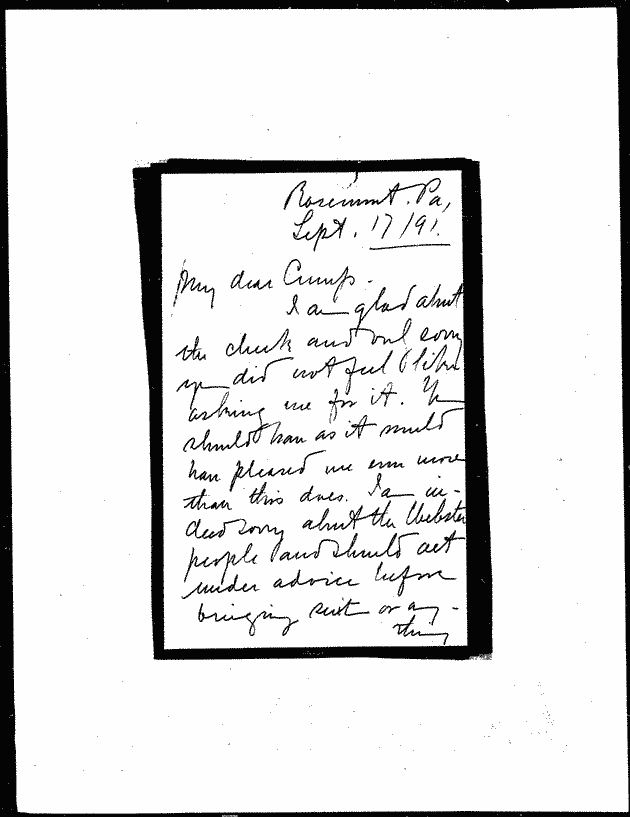 Rosemont. Pa,
Sept. 17/91.
My dear Crump.
I am glad about
the check and only sorry
you did not feel like
asking me for it. You
should have as it would
have pleased me even more
than this does. I am in-
deed sorry about the Webster
people and should act
under advice before
bringing suit or any-
thing